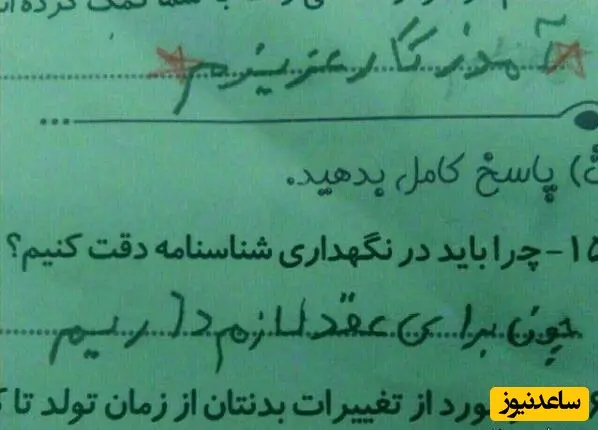 با شما کمک کرده
آموزگار عزیزم
) پاسخ کامل بدهید.
۱۵- چرا باید در نگهداری شناسنامه دقت کنیم؟
چون برای عقد لازم داریم
ورد از تغییرات بدنتان از زمان تولد تا
ساعدنیوز